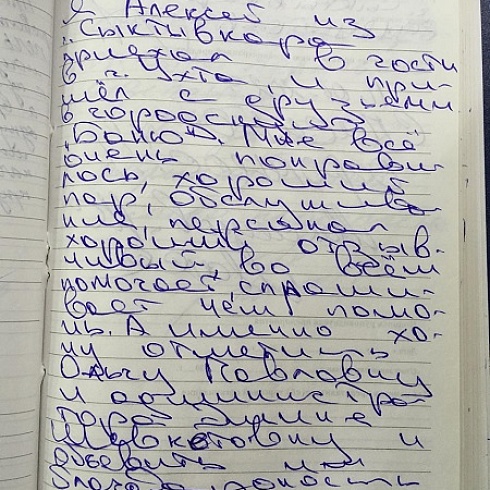 Я Алексей из
г. Сыктывкара
приехал в гости
в г. Ухта, и при-
шёл с друзьями
в городскую
"Баню". Мне всё
очень понрави-
лось, хороший
пар, обслужива
ние, персонал
хороший отзыв-
чивый, во всём
помогает, спраши-
вает чем помо-
чь. А именно хо-
чу отметить
Ольгу Павловну
и администра-
тора
Шавкатовну и
объявить им
благодарность